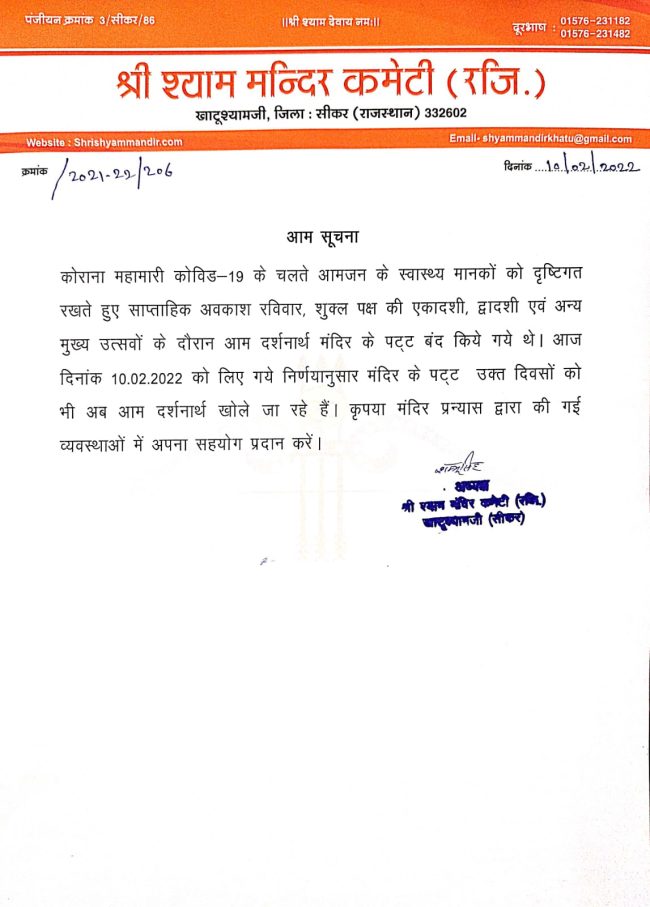 पंजीयन क्रमांक 3/सीकर/86
॥श्री श्याम देवाय नमः॥
दूरभाष : 01576-231182
01576-231482
श्री श्याम मन्दिर कमेटी (रजि.)
खाटूश्यामजी, जिला : सीकर (राजस्थान) 332602
Website : Shrishyammandir.com
Email- shyammandirkhatu@gmail.com
क्रमांक /2021-22/206
दिनांक ....10/02/2022
आम सूचना
कोराना महामारी कोविड–19 के चलते आमजन के स्वास्थ्य मानकों को दृष्टिगत
रखते हुए साप्ताहिक अवकाश रविवार, शुक्ल पक्ष की एकादशी, द्वादशी एवं अन्य
मुख्य उत्सवों के दौरान आम दर्शनार्थ मंदिर के पट्ट बंद किये गये थे। आज
दिनांक 10.02.2022 को लिए गये निर्णयानुसार मंदिर के पट्ट उक्त दिवसों को
भी अब आम दर्शनार्थ खोले जा रहे हैं। कृपया मंदिर प्रन्यास द्वारा की गई
व्यवस्थाओं में अपना सहयोग प्रदान करें।
अध्यक्ष
श्री श्याम मंदिर कमेटी (रजि.)
खाटूश्यामजी (सीकर)